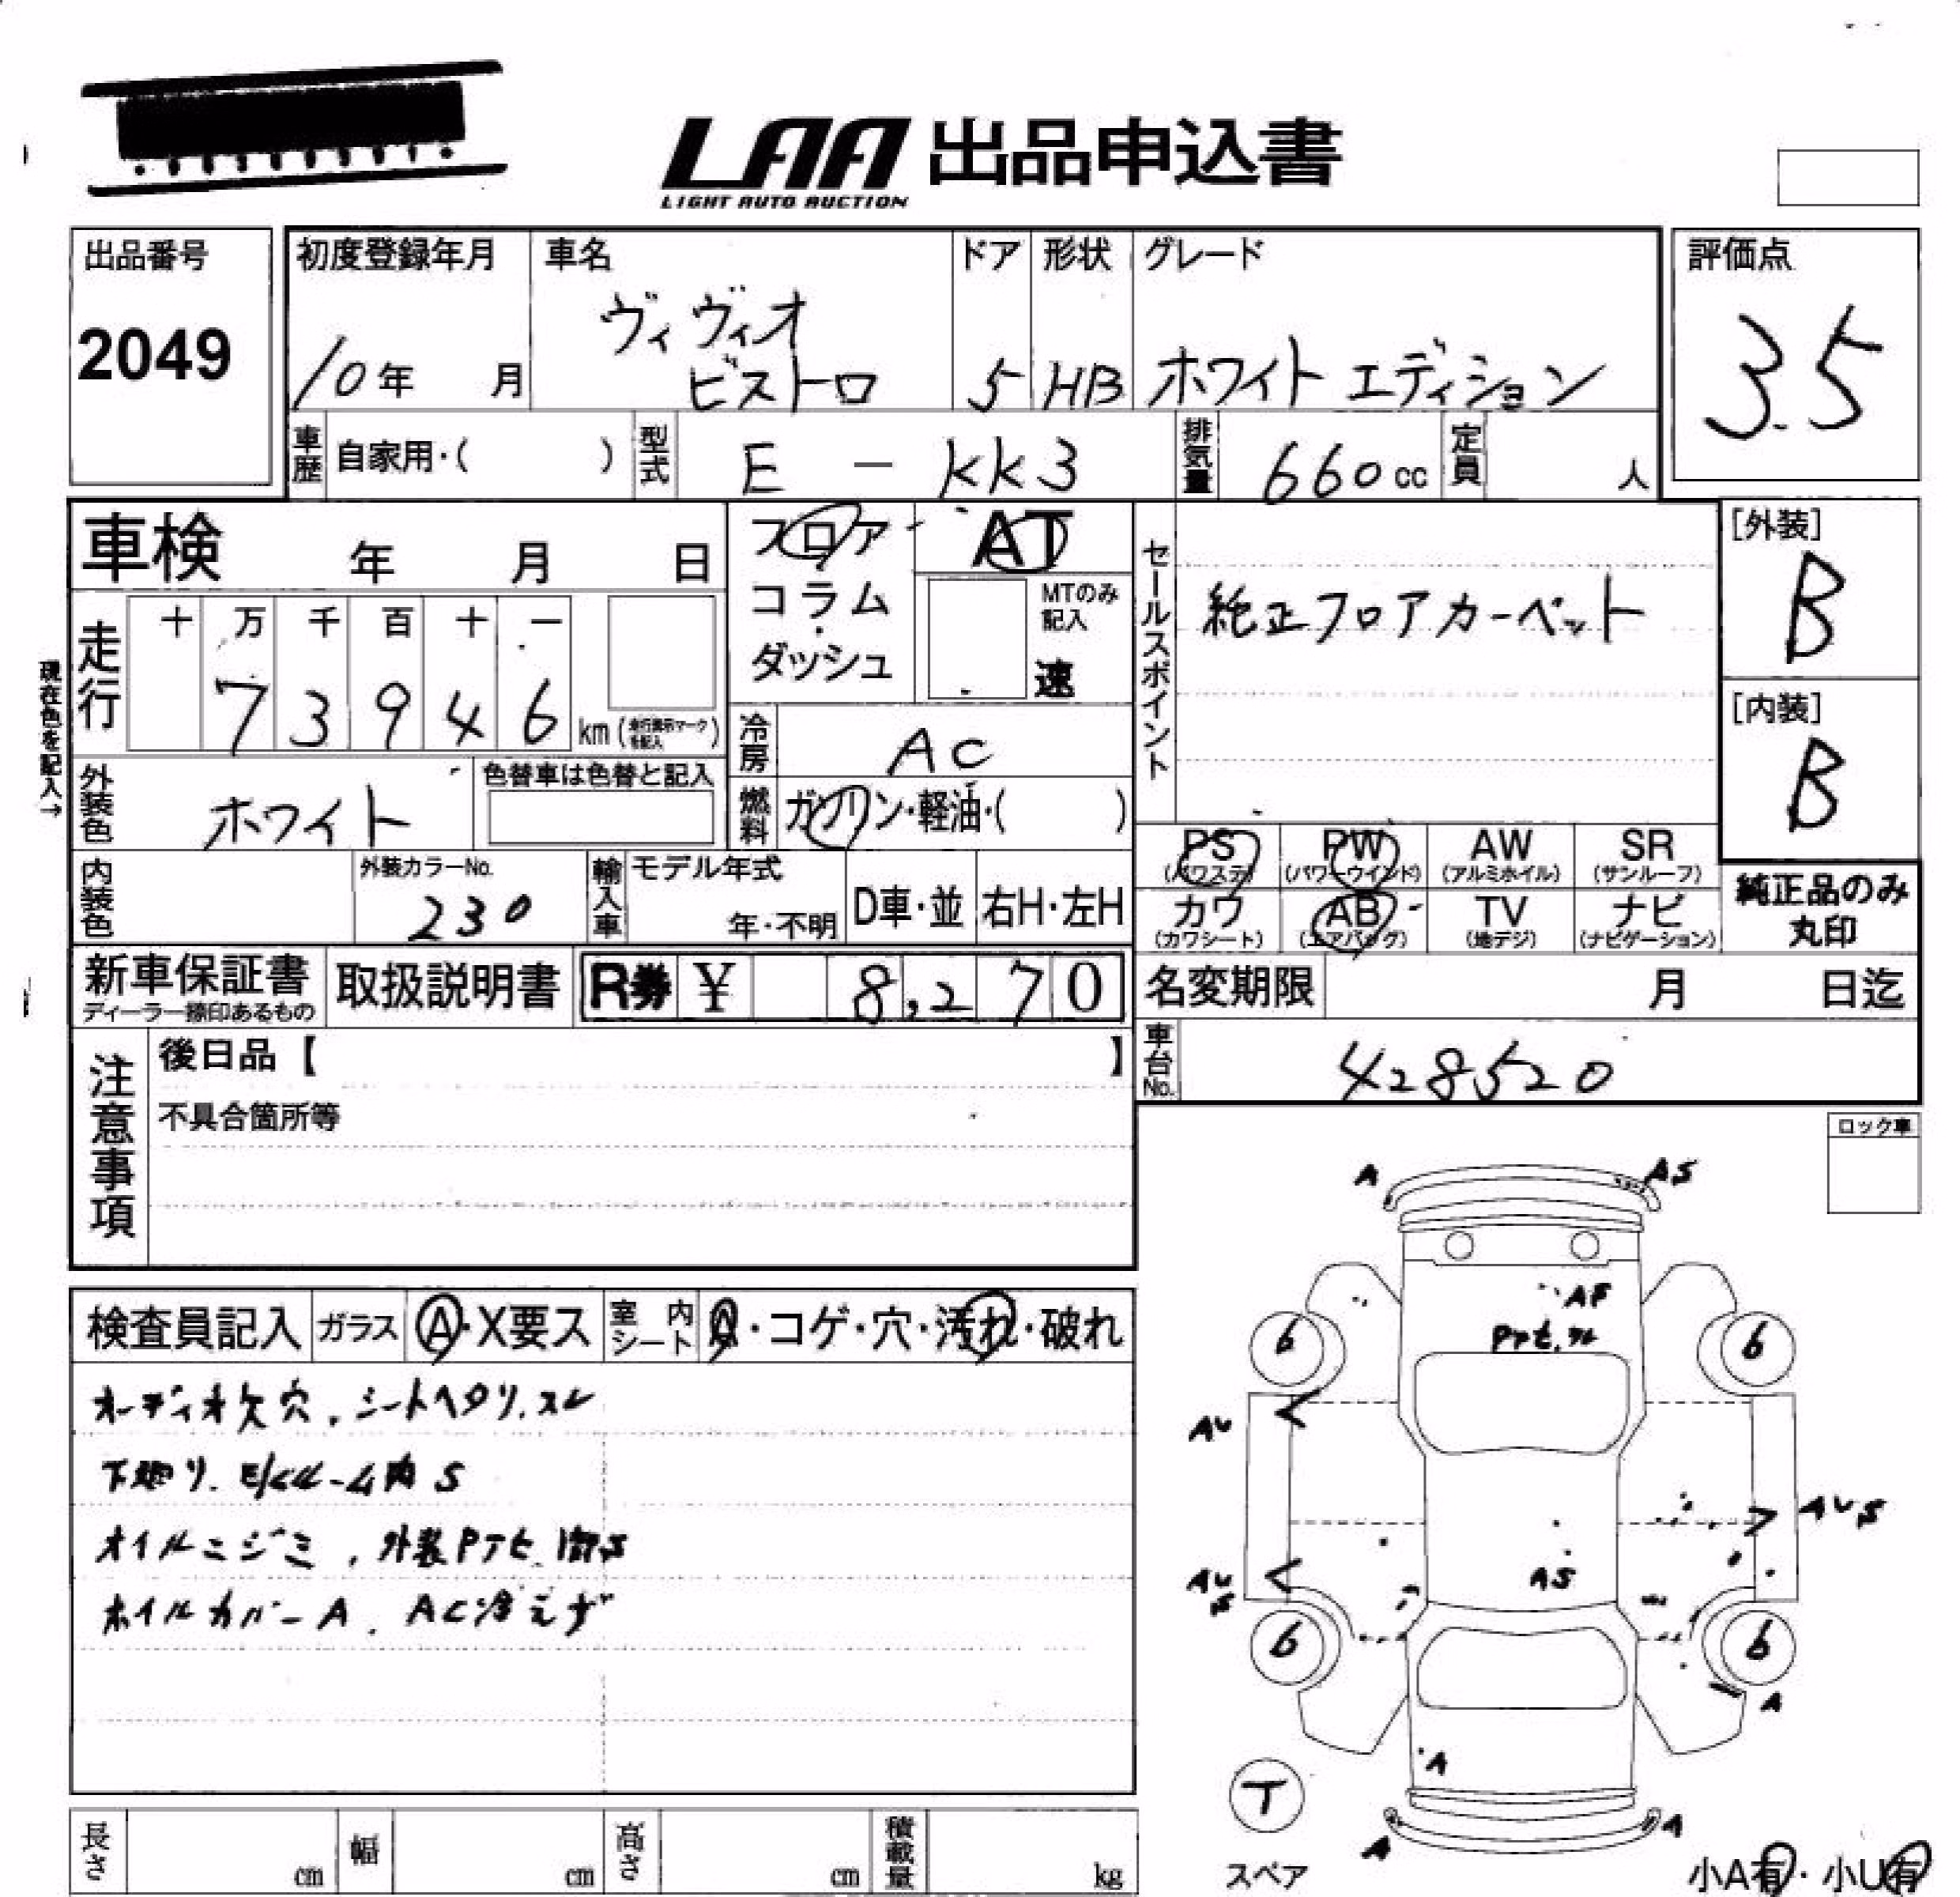 LAA 出品申込書
LIGHT AUTO AUCTION
出品番号
2049
初度登録年月
10年 月
車名
ヴィヴィオ
ビストロ
ドア
5
形状
HB
グレード
ホワイトエディション
評価点
3.5
車歴 自家用・( )
型式 E - KK3
排気量 660cc
定員 人
車検 年 月 日
フロア・
コラム
・
ダッシュ
AT
MTのみ
記入
速
セールスポイント
純正フロアカーペット
[外装]
B
[内装]
B
現在色を記入→
走行
十 万 千 百 十 一
7 3 9 4 6 km
冷房 AC
外装色 ホワイト
色替車は色替と記入
燃料 ガソリン・軽油・( )
PS
(パワステ)
PW
(パワーウインド)
AW
(アルミホイル)
SR
(サンルーフ)
カワ
(カワシート)
AB
(エアバッグ)
TV
(地デジ)
ナビ
(ナビゲーション)
純正品のみ
丸印
内装色
外装カラーNo.
230
輸入車
モデル年式
年・不明
D車・並
右H・左H
新車保証書
ディーラー捺印あるもの
取扱説明書
R券 ¥ 8,270
名変期限 月 日迄
車台No. 428520
注意事項
後日品【 】
不具合箇所等
ロック車
検査員記入 ガラス A・X要ス 室内シート ・コゲ・穴・汚れ・破れ
オーディオ欠穴、シートヘタリ、スレ
下廻り、E/ルーム内S
オイルニジミ、外装PテヒS
ホイルカバーA、AC冷えず
A
AS
AF
Pテヒ
6
6
AU
AUS
AU
S
AS
6
6
A
A
T
スペア
A
A
小A有・小U有
長さ cm
幅 cm
高さ cm
積載量 kg